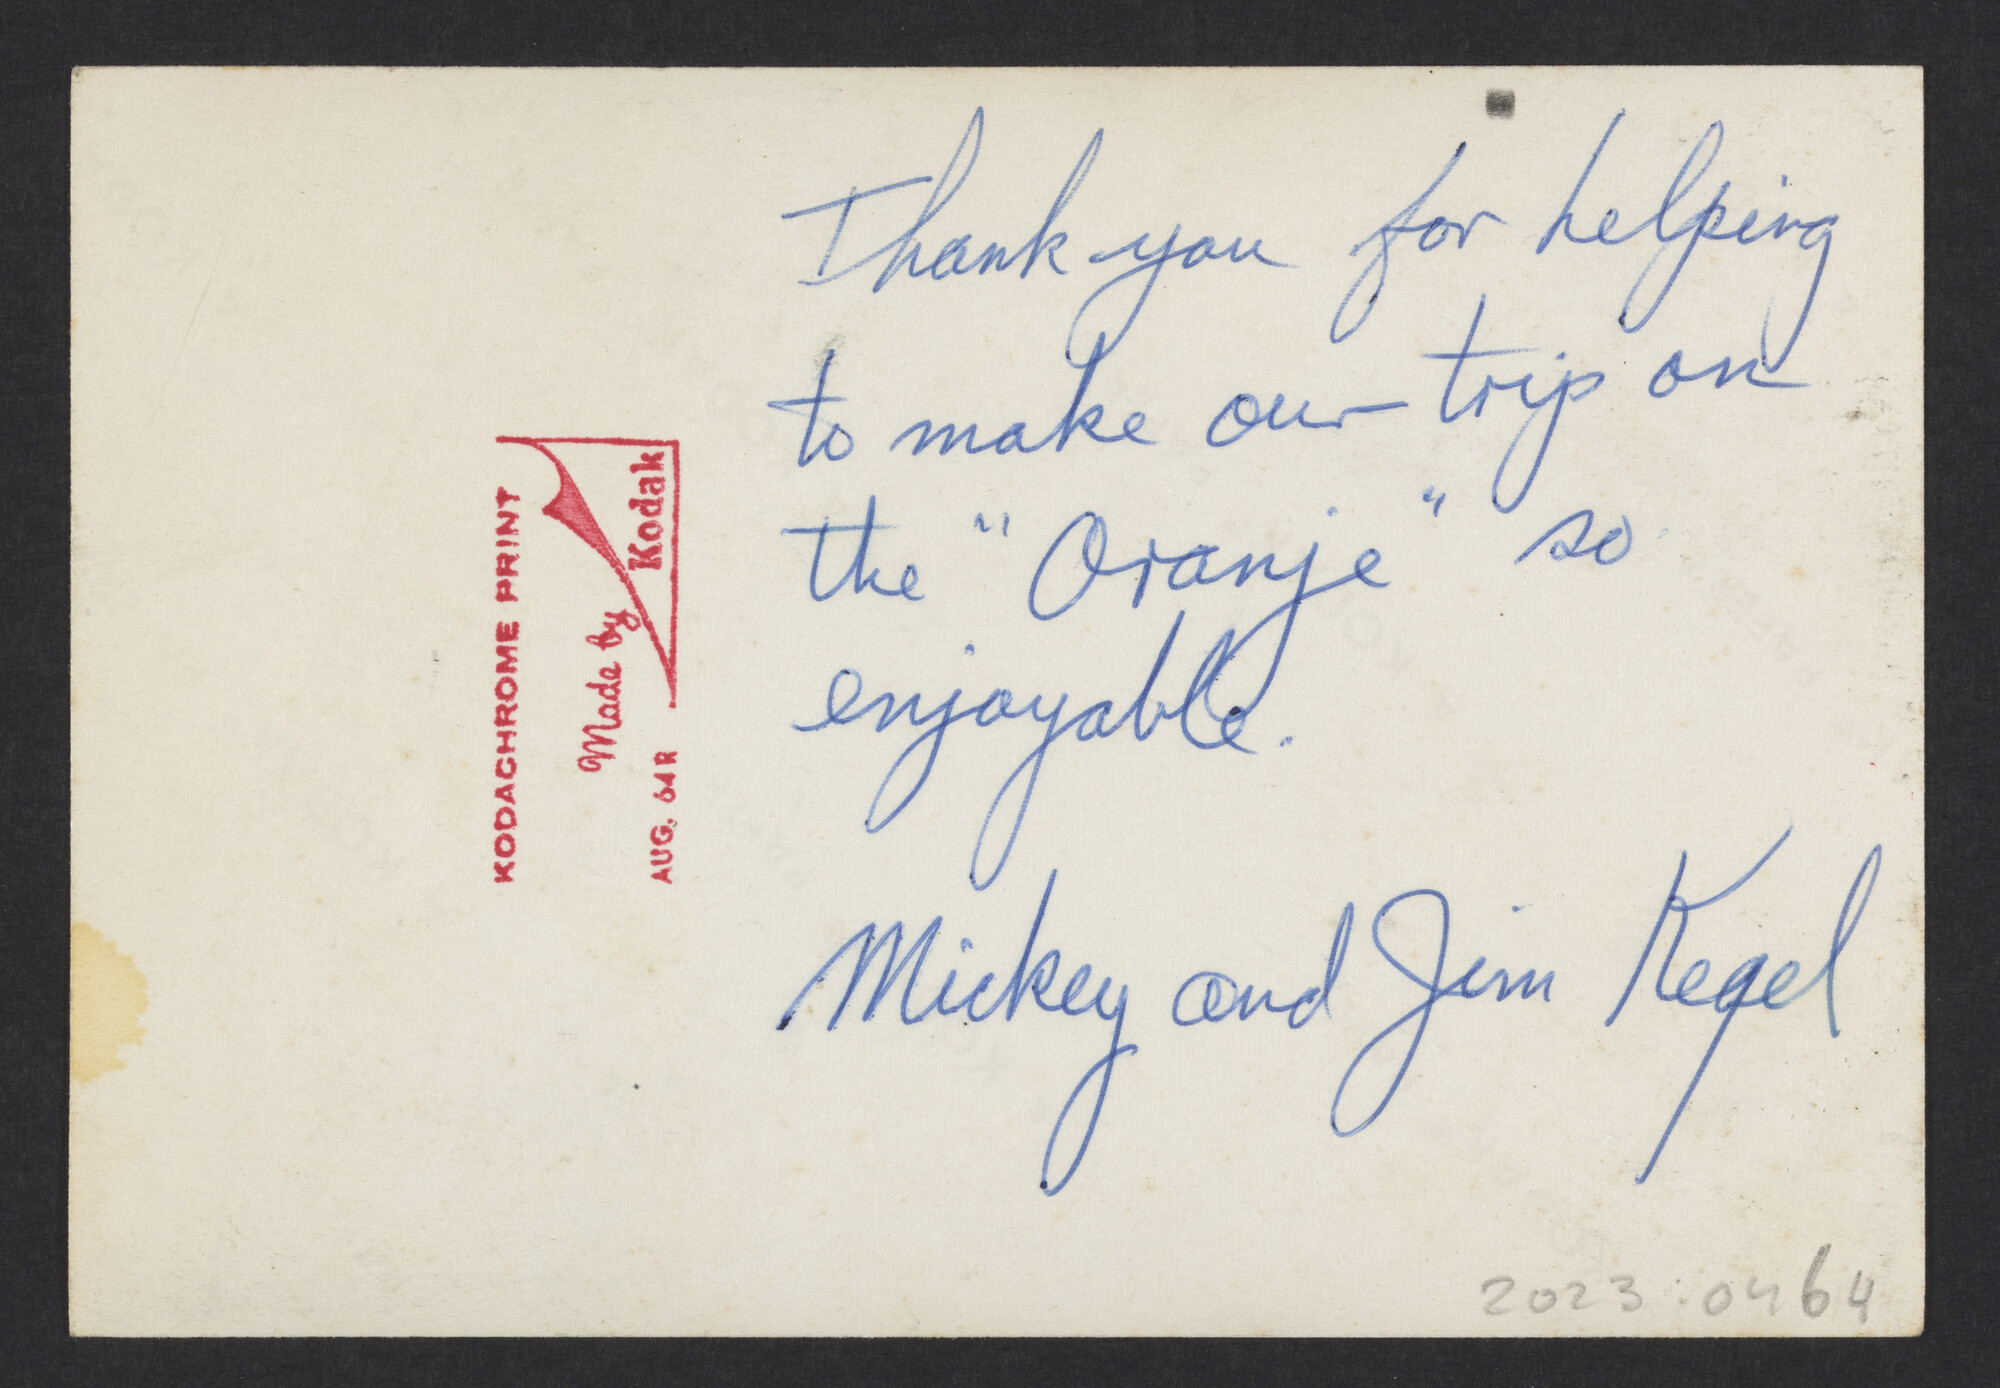 Thank you for helping
to make our trip on
the "Oranje" so
enjoyable.
Mickey and Jim Kegel
KODACHROME PRINT
Made by
Kodak
AUG. 64 R
2023:0464